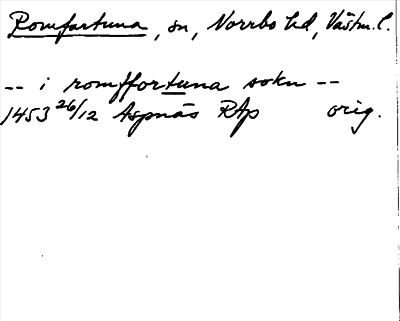 Romfartuna, sn, Norrbo hd, Västm.l.
-- i romffortuna sokn --
1453 26/12 Aspnäs RAp orig.